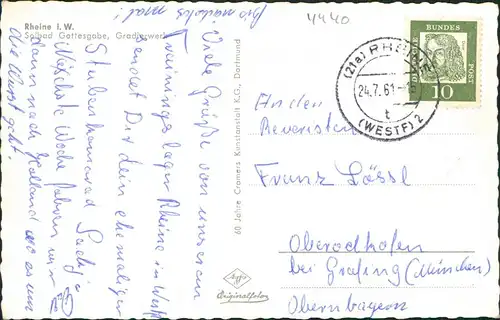 Rheine i. W.
Solbad Gottesgabe, Gradierwerk
4440
Viele Grüße von unserem
Trainingslager Rheine in Westf.
sendet Dir Dein ehemaliger
Stubenkamerad Sadji
Nächste Woche fahren wir
dann nach Holland wo es um
die Wurst geht.
60 Jahre Cramers Kunstanstalt K.G., Dortmund
Agfa
Originalfoto
DEUTSCHE
BUNDES
POST
10
(21a) RHEINE
24.7.61
t
(WESTF) 2
An den
Revieristen
Franz Lössl
bei Grafing (München)
Oberbayern